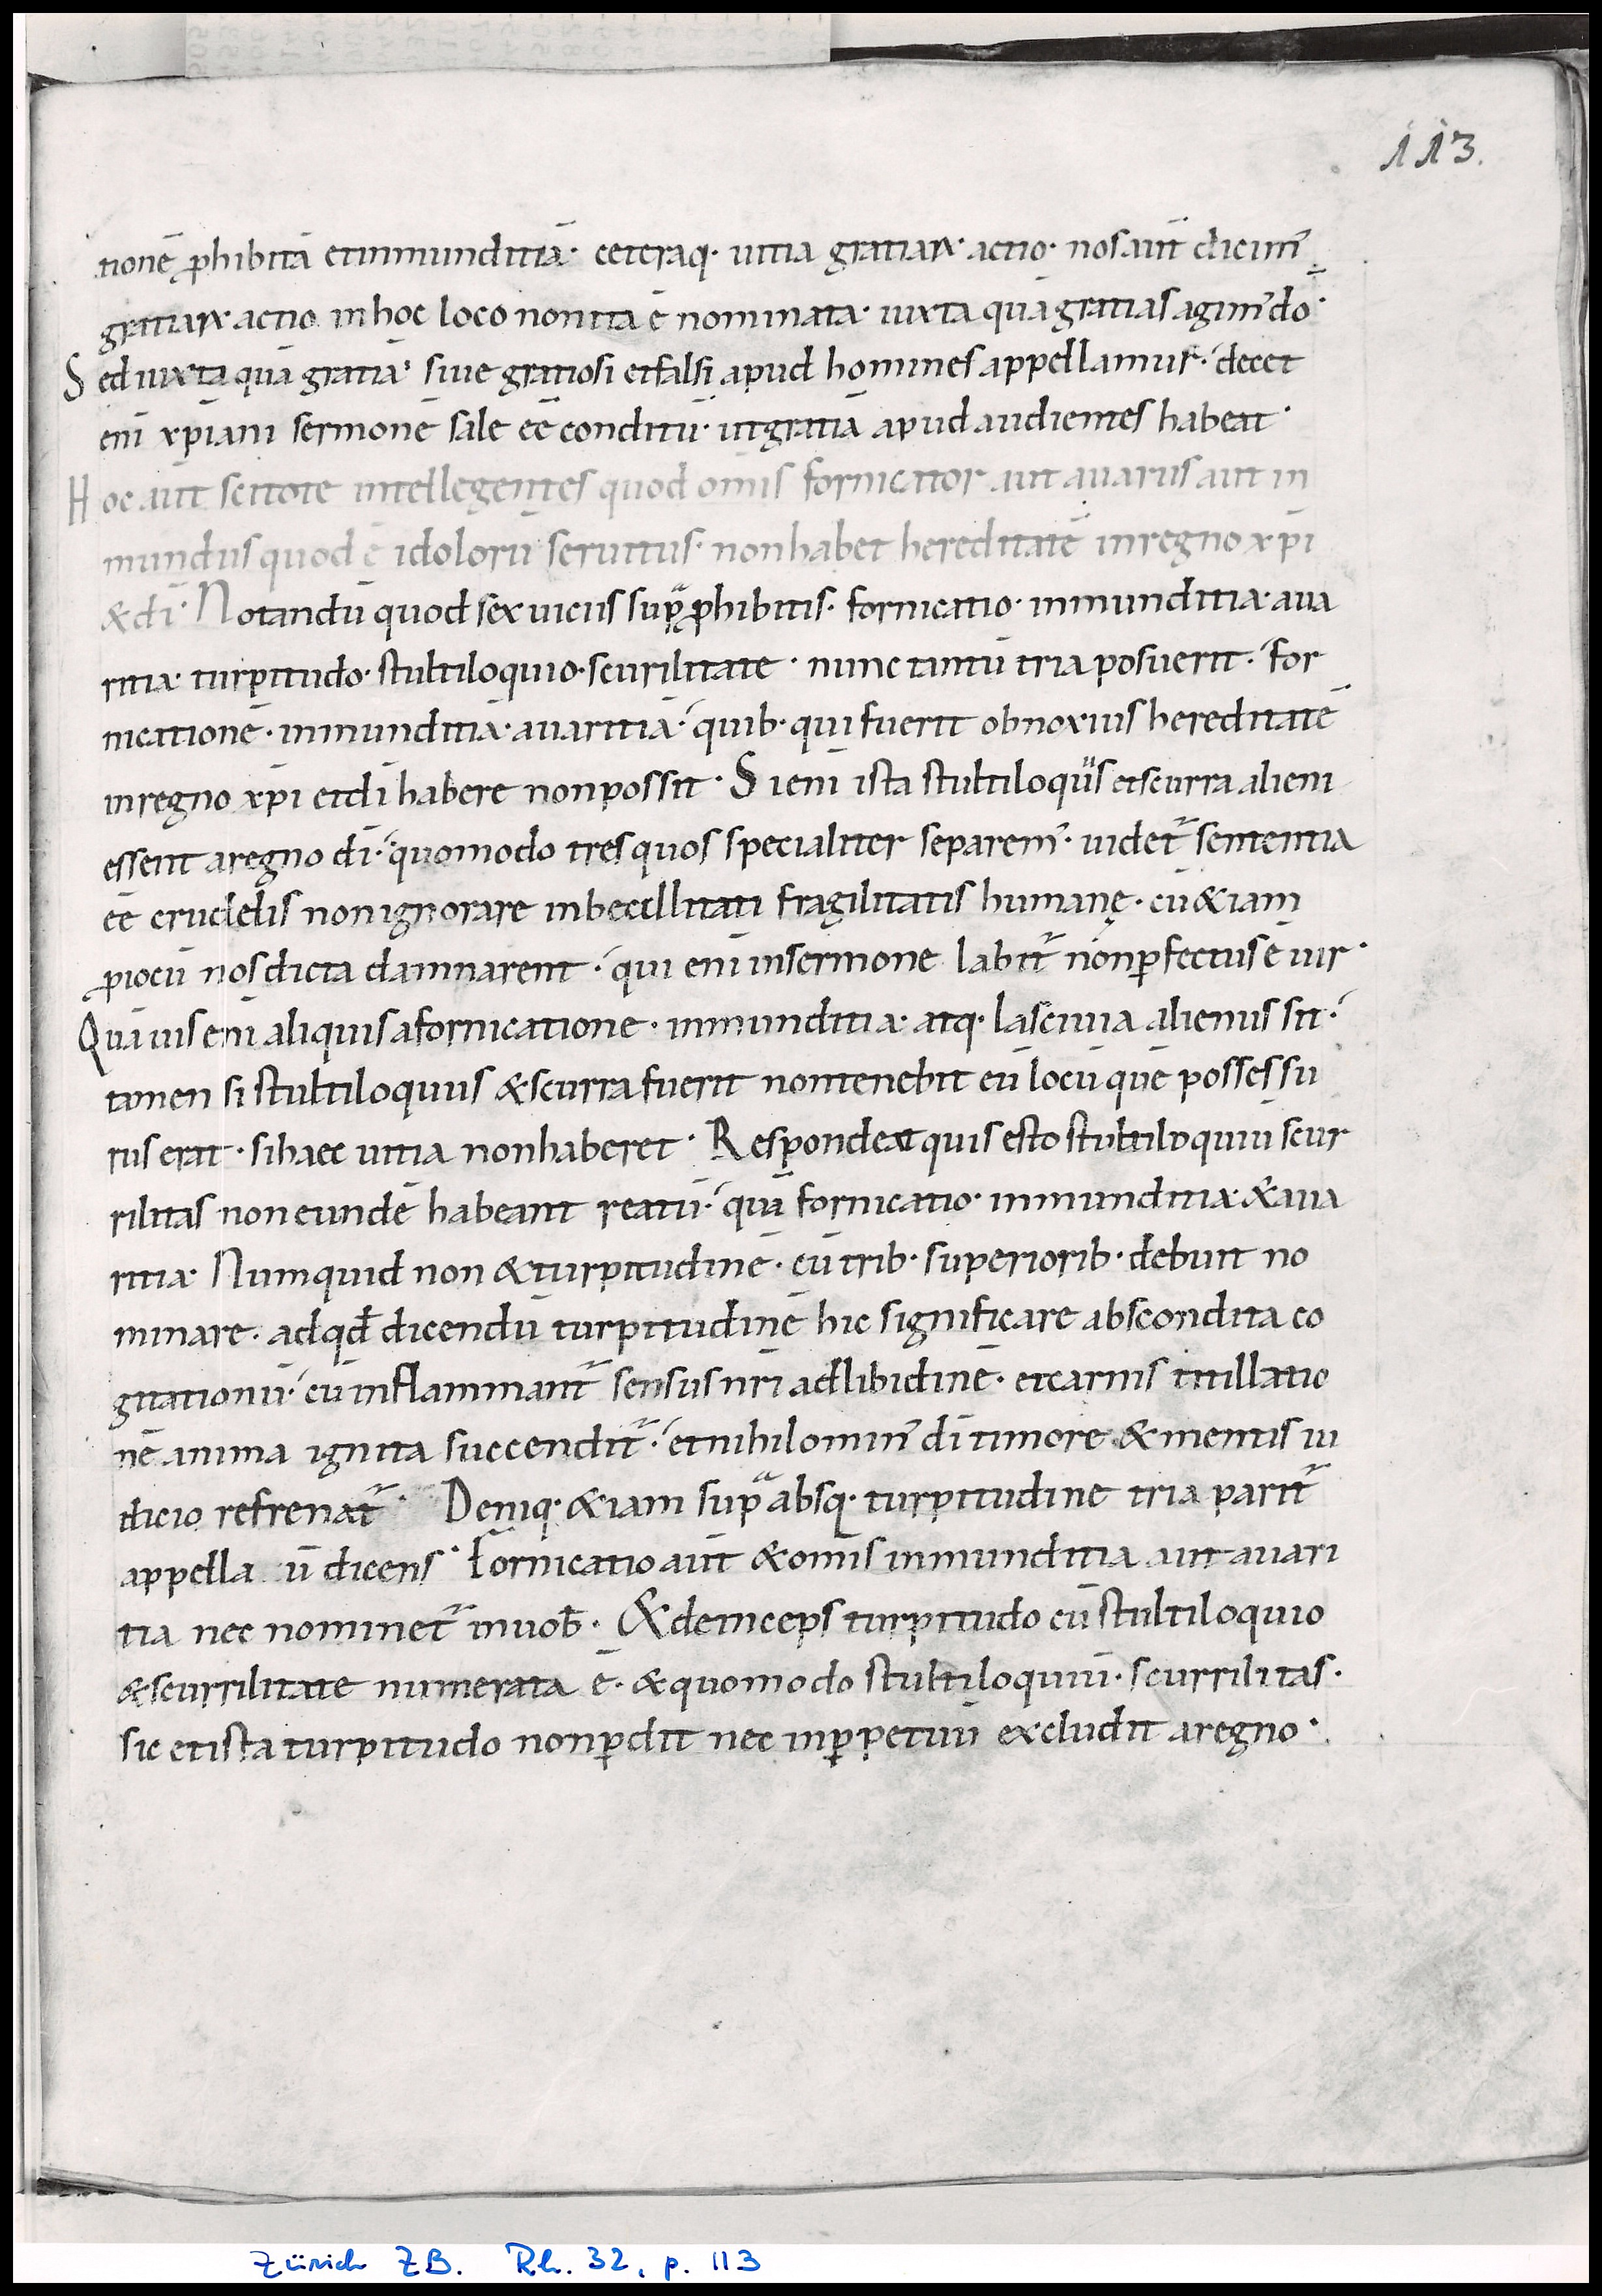 113.
tionē ꝓhibitā et inmunditiā· ceteraq· uitia gratiaꝝ· actio· nos aūt dicim̄
gratiaꝝ actio in hoc loco non ita ē nominata· iuxta quā gratias agim̄ dō·
Sed iuxta quā gratiā· siue gratiosi et falsi apud homines appellamur· decet
enī xp̄iani sermonē sale eē conditū· ut gratiā apud audientes habeat·
Hoc aūt scitote intellegentes quod om̄is fornicator aut auarus aut in
mundus quod ē idolorū seruitus· non habet hereditatē in regno xp̄i
& dī· Notandū quod sex uiciis sup̄ ꝓhibitis· fornicatio· inmunditia· aua
ritia· turpitudo· stultiloquio· scurilitate· nunc tantū tria posuerit· for
nicationē· inmunditiā· auaritiā· quib· qui fuerit obnoxius hereditatē
in regno xp̄i et dī habere non possit· Si enī ista stultiloquus et scurra alieni
essent a regno dī· quomodo tres quos specialiter separem̄· uidet̄ sententia
eē crudelis non ignorare inbecillitati fragilitatis humanę· cū & iam
ꝓ iocū nos dicta damnarent· qui enī in sermone labit̄ non ꝑfectus ē uir·
Quā uis enī aliquis a fornicatione· inmunditia· atq· lasciuia alienus sit·
tamen si stultiloquus & scurra fuerit non tenebit eū locū quē possessu
rus erat· si haec uitia non haberet· Respondeat quis esto stultiloquiū scur
rilitas non eundē habeant reatū· quā fornicatio· inmunditia & aua
ritia· Numquid non & turpitudinē· cū trib· superiorib· debuit no
minare· ad qđ dicendū turpitudinē hic significare abscondita co
gitationū· cū inflammant̄ sensus nr̄i ad libidinē· et carnis titillatio
nē anima ignita succendit̄· et nihilomin̄ dī timore & mentis iu
dicio refrenat̄· Deniq· & iam sup̄ absq· turpitudine tria parit̄
appella ū dicens· Fornicatio aūt & om̄is inmunditia aut auari
tia nec nominet̄ in uob̄· & deinceps turpitudo cū stultiloquio
& scurrilitate numerata ē· & quomodo stultiloquiū· scurrilitas·
sic et ista turpitudo non ꝑdit nec in ꝑpetuū excludit a regno·
Zürich ZB. Rh. 32, p. 113